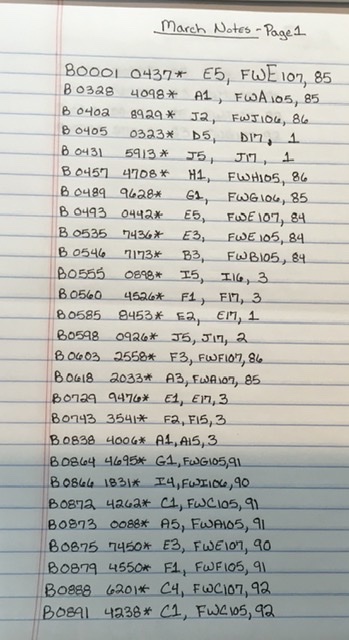 March Notes - Page 1
B0001 0437* E5, FWE107, 85
B0328 4098* A1, FWA105, 85
B0402 8929* J2, FWJ106, 86
B0405 0323* D5, D17, 1
B0431 5913* J5, J17, 1
B0457 4708* H1, FWH105, 86
B0489 9628* G1, FWG106, 85
B0493 0442* E5, FWE107, 84
B0535 7436* E3, FWE105, 84
B0546 7173* B3, FWB105, 84
B0555 0898* I5, I16, 3
B0560 4526* F1, F17, 3
B0585 8453* E2, E17, 1
B0598 0926* J5, J17, 2
B0603 2558* F3, FWF107, 86
B0618 2033* A3, FWA107, 85
B0729 9476* E1, E17, 3
B0743 3541* F2, F15, 3
B0838 4006* A1, A15, 3
B0864 4695* G1, FWG105, 91
B0866 1831* I4, FWI106, 90
B0872 4262* C1, FWC105, 91
B0873 0088* A5, FWA105, 91
B0875 7450* E3, FWE107, 90
B0879 4550* F1, FWF105, 91
B0888 6201* C4, FWC107, 92
B0891 4238* C1, FWC105, 92